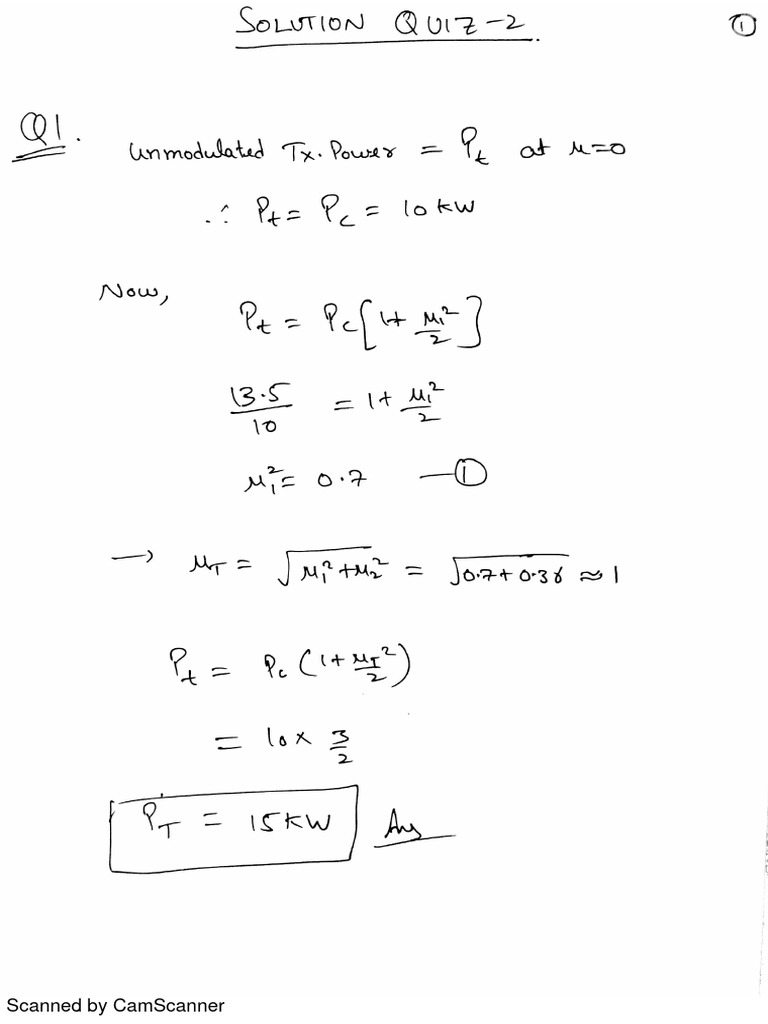 SOLUTION QUIZ-2.
①
Q1.
Unmodulated Tx. Power = Pt at μ=0
∴ Pt = Pc = 10 KW
Now,
Pt = Pc[1+ μ1²/2]
13.5/10 = 1+ μ1²/2
μ1² = 0.7 —①
→ μT = √(μ1²+μ2²) = √(0.7+0.36) ≈ 1
Pt = Pc (1+ μT²/2)
= 10 × 3/2
PT = 15 KW Ans
Scanned by CamScanner